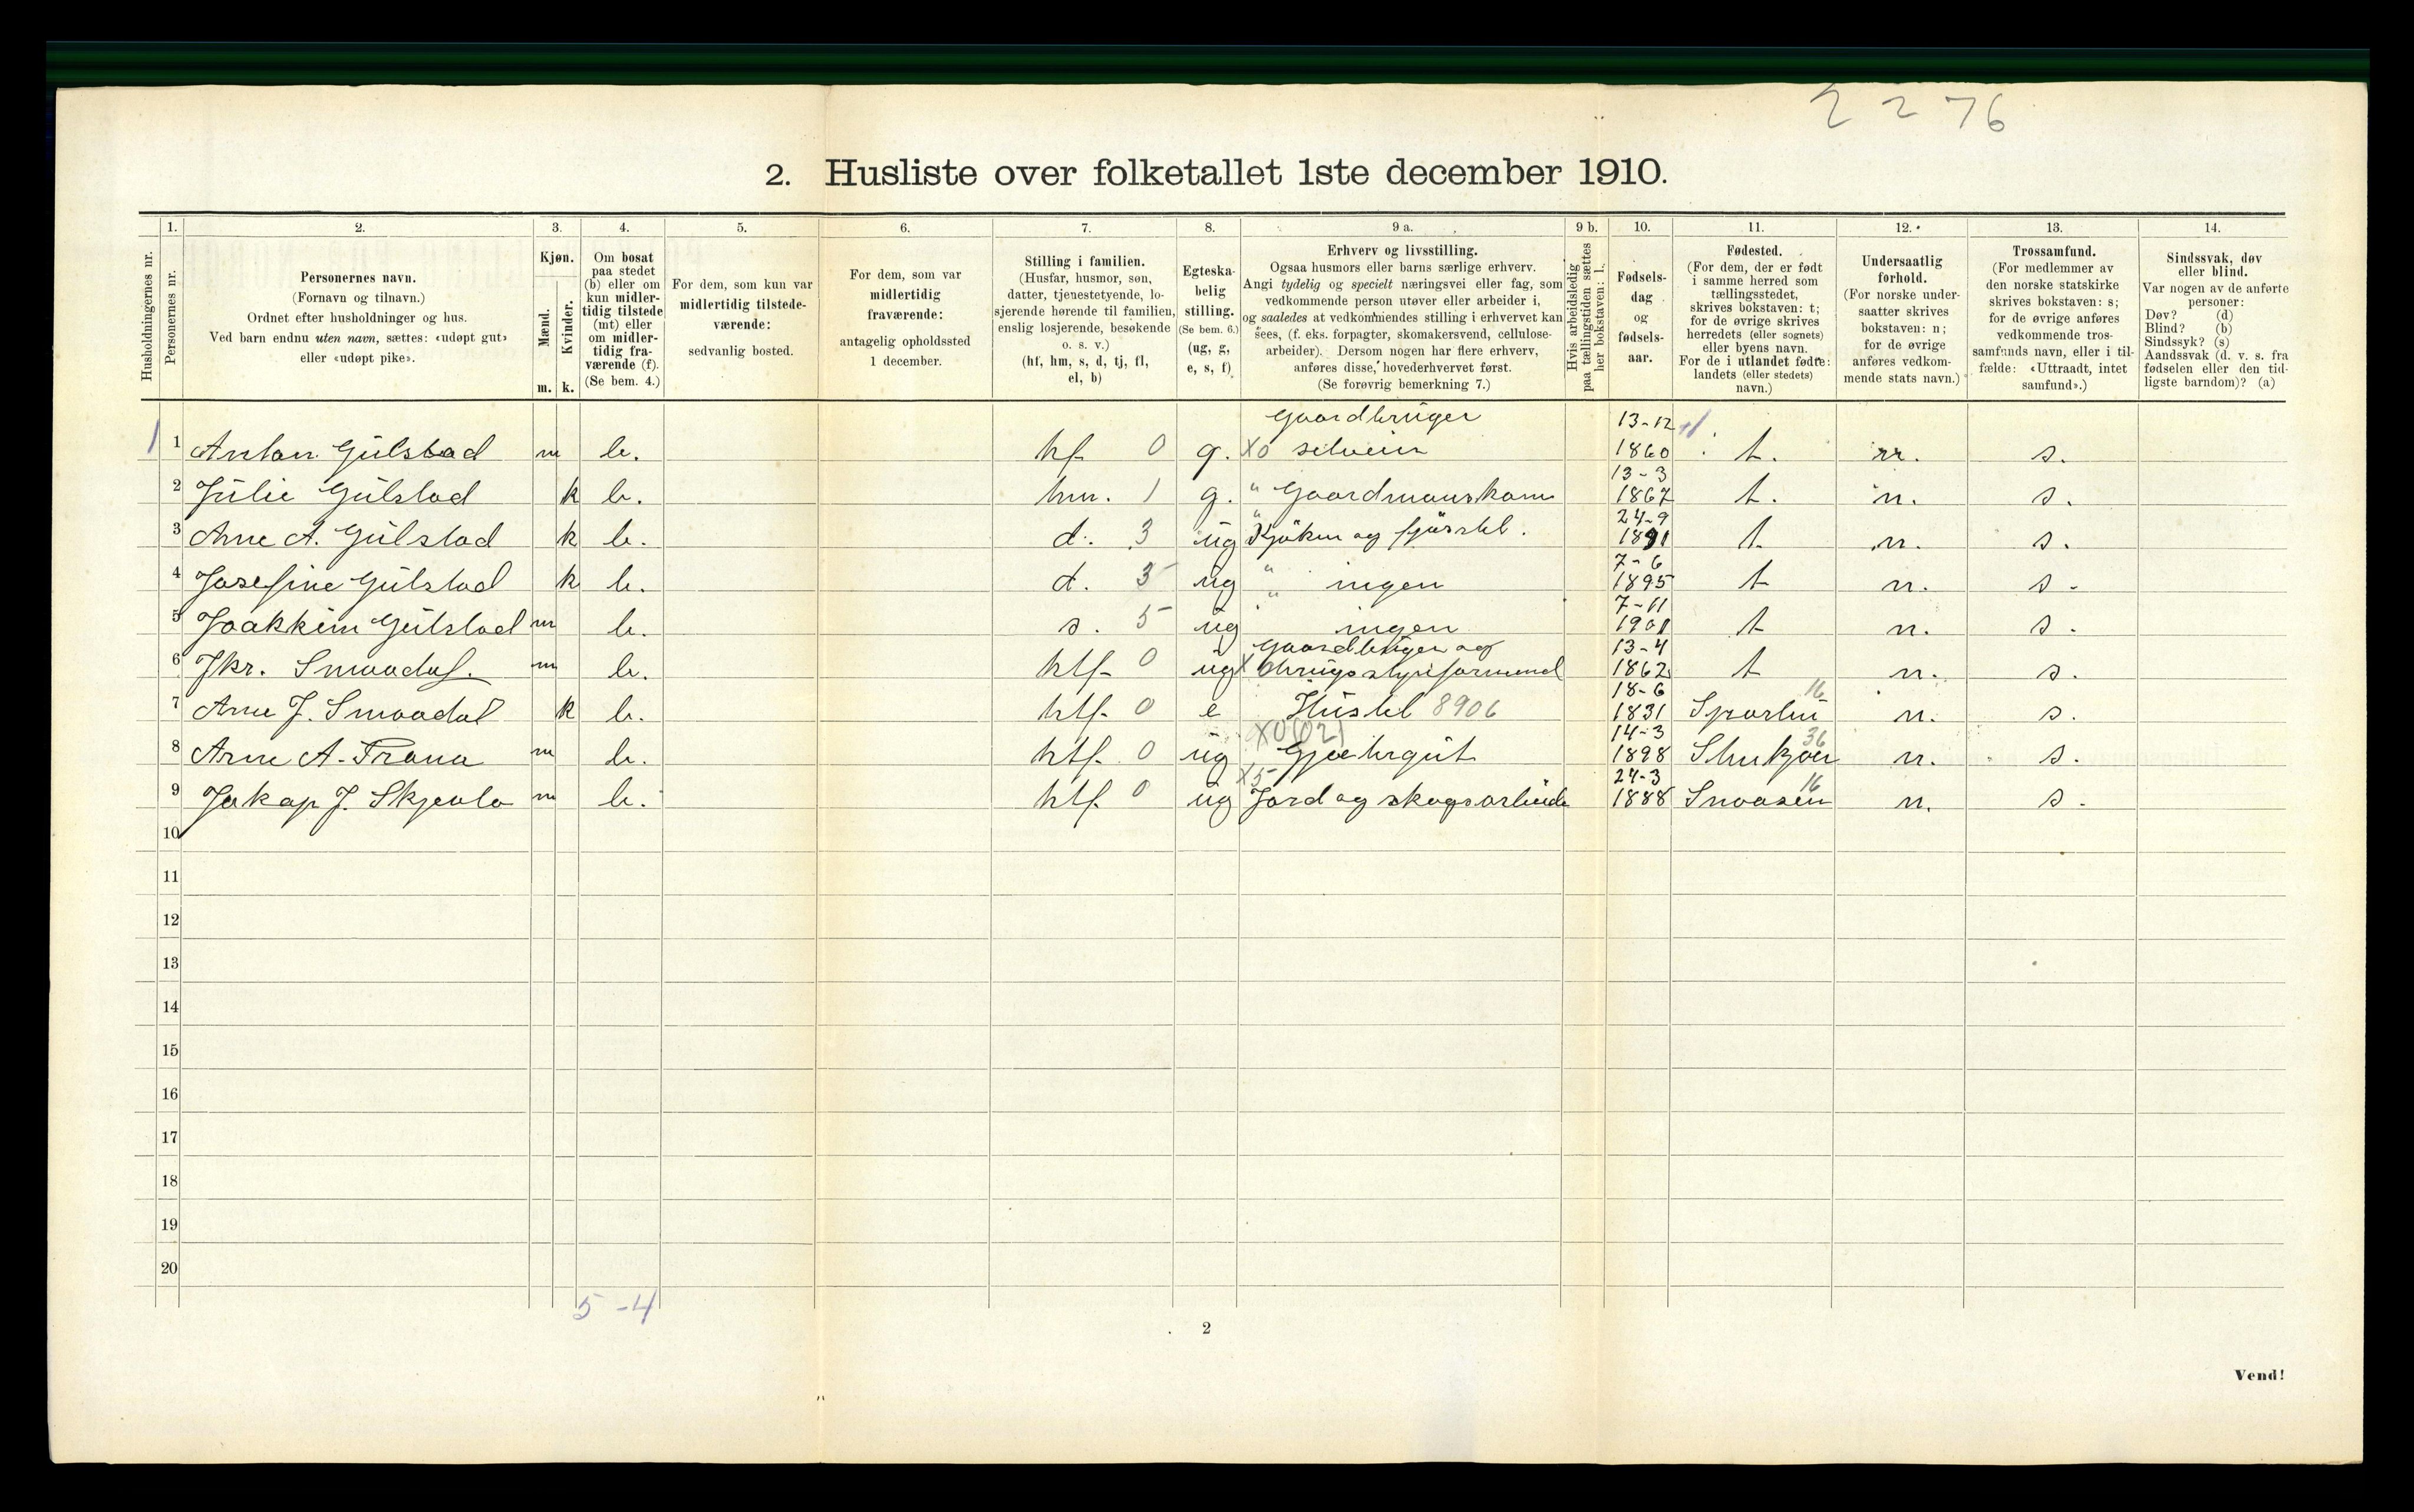 2 2 76
2. Husliste over folketallet 1ste december 1910.
Husholdningernes nr.
1. Personernes nr.
2. Personernes navn.
(Fornavn og tilnavn.)
Ordnet efter husholdninger og hus.
Ved barn endnu uten navn, sættes: «udøpt gut»
eller «udøpt pike».
3. Kjøn.
Mænd. m.
Kvinder. k.
4. Om bosat
paa stedet
(b) eller om
kun midler-
tidig tilstede
(mt) eller
om midler-
tidig fra-
værende (f).
(Se bem. 4.)
5. For dem, som kun var
midlertidig tilstede-
værende:
sedvanlig bosted.
6. For dem, som var
midlertidig
fraværende:
antagelig opholdssted
1 december.
7. Stilling i familien.
(Husfar, husmor, søn,
datter, tjenestetyende, lo-
sjerende hørende til familien,
enslig losjerende, besøkende
o. s. v.)
(hf, hm, s, d, tj, fl,
el, b)
8. Egteska-
belig
stilling.
(Se bem. 6.)
(ug, g,
e, s, f)
9 a. Erhverv og livsstilling.
Ogsaa husmors eller barns særlige erhverv.
Angi tydelig og specielt næringsvei eller fag, som
vedkommende person utøver eller arbeider i,
og saaledes at vedkommendes stilling i erhvervet kan
sees, (f. eks. forpagter, skomakersvend, cellulose-
arbeider). Dersom nogen har flere erhverv,
anføres disse, hovederhvervet først.
(Se forøvrig bemerkning 7.)
9 b. Hvis arbeidsledig
paa tællingstiden sættes
her bokstaven: l.
10. Fødsels-
dag
og
fødsels-
aar.
11. Fødested.
(For dem, der er født
i samme herred som
tællingsstedet,
skrives bokstaven: t;
for de øvrige skrives
herredets (eller sognets)
eller byens navn.
For de i utlandet fødte:
landets (eller stedets)
navn.)
12. Undersaatlig
forhold.
(For norske under-
saatter skrives
bokstaven: n;
for de øvrige
anføres vedkom-
mende stats navn.)
13. Trossamfund.
(For medlemmer av
den norske statskirke
skrives bokstaven: s;
for de øvrige anføres
vedkommende tros-
samfunds navn, eller i til-
fælde: «Uttraadt, intet
samfund».)
14. Sindssvak, døv
eller blind.
Var nogen av de anførte
personer:
Døv? (d)
Blind? (b)
Sindssyk? (s)
Aandssvak (d. v. s. fra
fødselen eller den tid-
ligste barndom)? (a)
Gaardbruger 13-12
1 1 Anton Gülstad m b. hf 0 g. X0 selveier 1860 t. n. s.
13-3
2 Julie Gülstad k b. hm. 1 g. " Gaardmanskone 1867 t. n. s.
24-9
3 Arne A. Gülstad k b. d. 3 ug Kjöken og fjösstel. 1891 t. n. s.
7-6
4 Josefine Gülstad k b. d. 3 ug " ingen 1895 t n. s.
7-11
5 Joakkim Gülstad m b. s. 5 ug " ingen 1901 t n. s.
Gaardbruger og 13-4
6 Jkr. Smaadal. m b. htf 0 ug X 1862 t n. s.
18-6 16
7 Arne J. Smaadal k b. htf. 0 e Hüstel 8906 1831 Sparbu n. s.
X0(02) 14-3 36
8 Arne A. Trana m b. htf. 0 ug Gjætergut 1898 Stenkjær n. s.
X5 24-3 16
9 Jakop J. Skjevlo m b. htf. 0 ug Jord og skogsarbeide 1888 Snaasen n. s.
10
11
12
13
14
15
16
17
18
19
20
5 - 4
2
Vend!